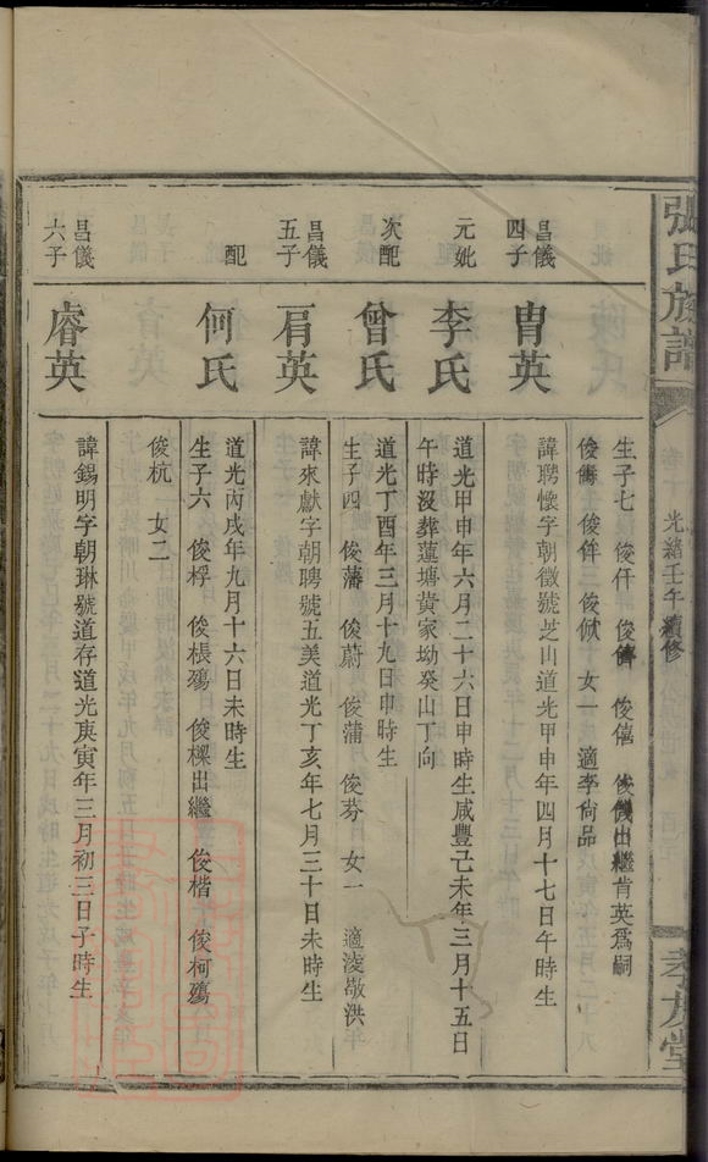 張氏族譜
光緒壬午續修
孝友堂
生子七 俊仟 俊儕 俊僖 俊儀出繼肯英爲嗣
俊儔 俊侔 俊佽 女一 適李尙品
昌儀四子
冑英
諱聘懷字朝徵號芝山道光甲申年四月十七日午時生
元妣
李氏
道光甲申年六月二十六日申時生咸豐己未年三月十五日
午時沒葬蓮塘黃家坳癸山丁向
次配
曾氏
道光丁酉年三月十九日申時生
生子四 俊藩 俊蔚 俊蒲 俊芬 女一 適淩敬洪
昌儀五子
肩英
諱來獻字朝聘號五美道光丁亥年七月三十日未時生
配
何氏
道光丙戌年九月十六日未時生
生子六 俊桴 俊棖殤 俊樑出繼 俊楷 俊柯殤
俊杭 女二
昌儀六子
睿英
諱錫明字朝琳號道存道光庚寅年三月初三日子時生